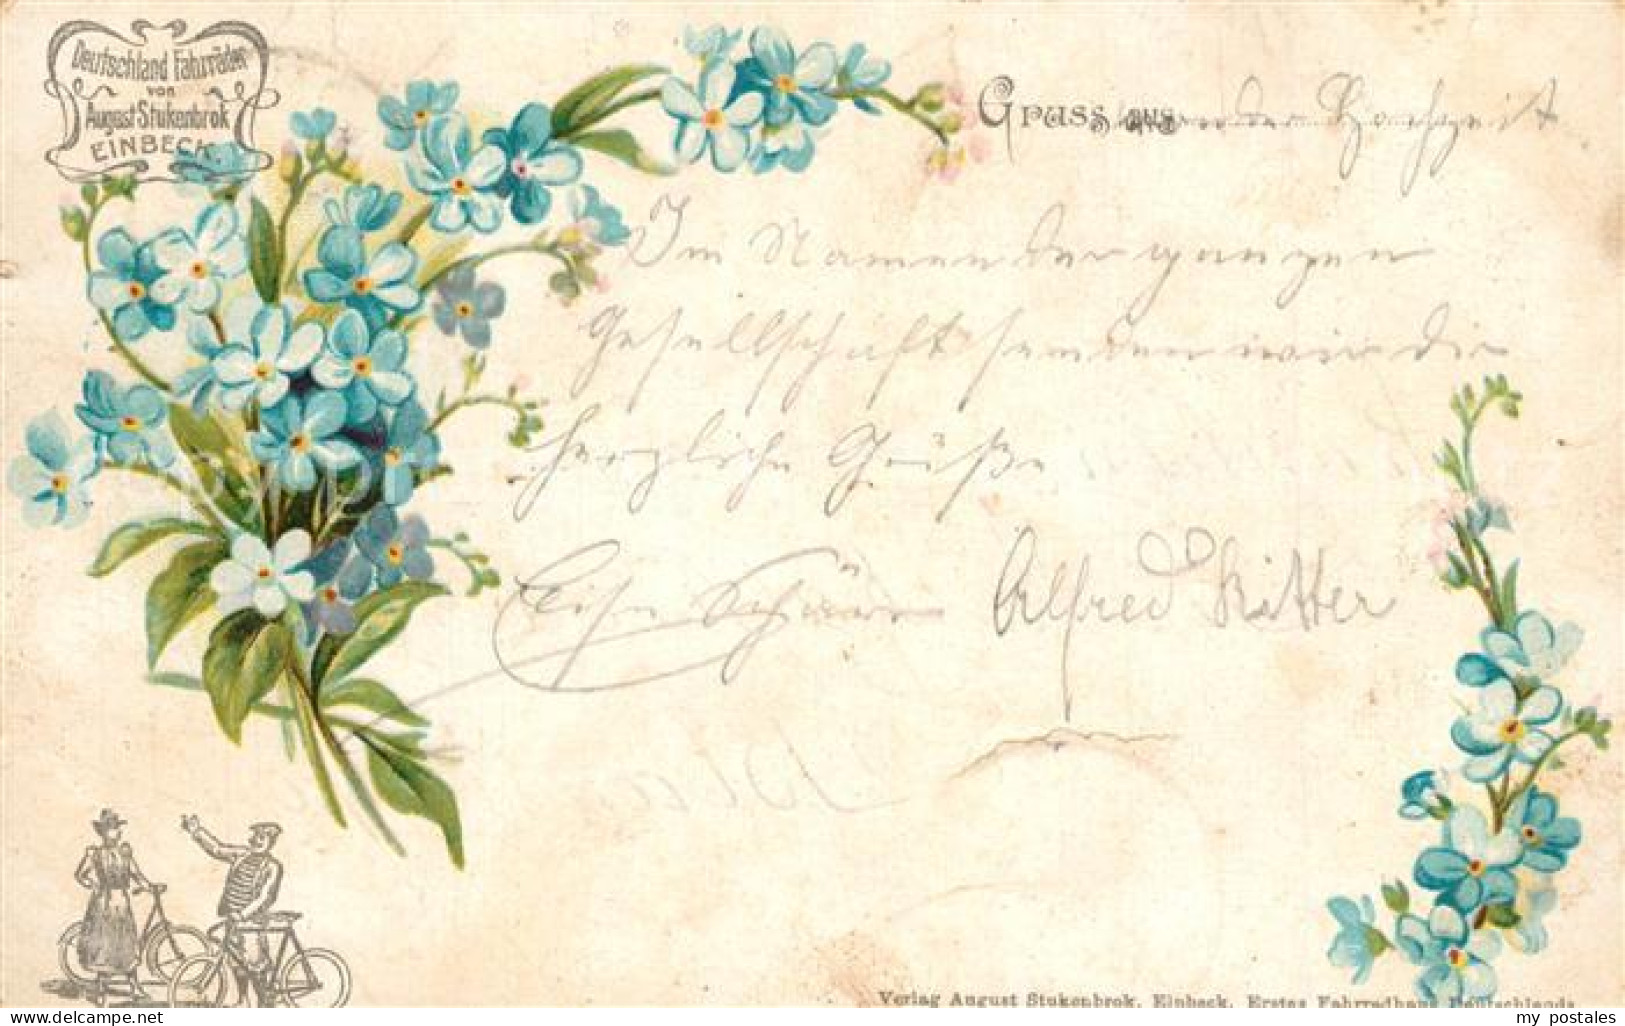 Deutschland Fahrräder
von
August Stukenbrok
EINBECK.
Gruss aus von der Hochzeit
Im Namen der ganzen
Gesellschaft senden wir die
herzliche Grüße
Alfred Ritter
Verlag August Stukenbrok, Einbeck. Erstes Fahrradhaus Deutschlands
my postales